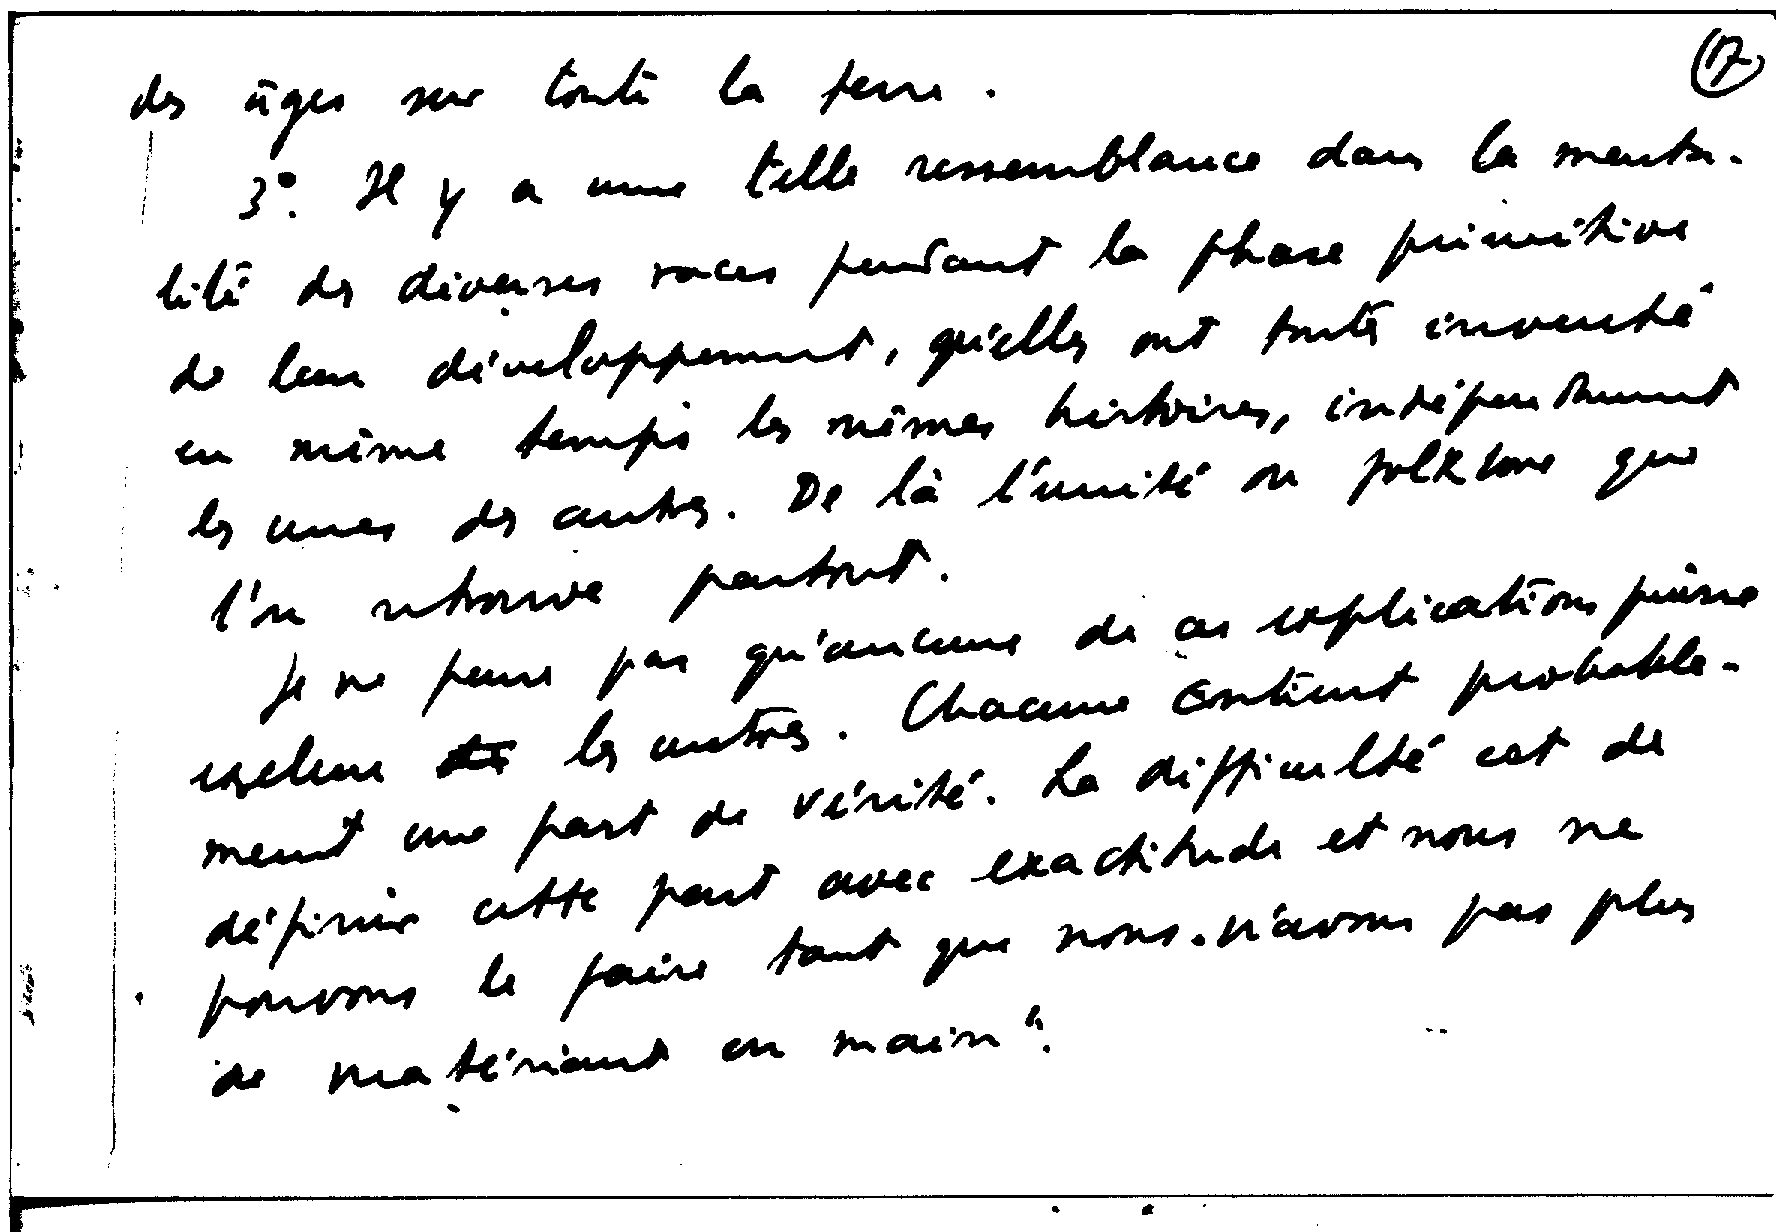 17
des âges sur toute la terre.
3°. Il y a une telle ressemblance dans la menta-
lité des diverses races pendant la phase primitive
de leur développement, qu'elles ont toutes inventé
en même temps les mêmes histoires, indépendamment
les unes des autres. De là l'unité du folklore que
l'on retrouve partout.
Je ne pense pas qu'aucune de ces explications puisse
exclure les autres. Chacune contient probable-
ment une part de vérité. La difficulté est de
définir cette part avec exactitude et nous ne
pouvons le faire tant que nous n'avons pas plus
de matériaux en main".